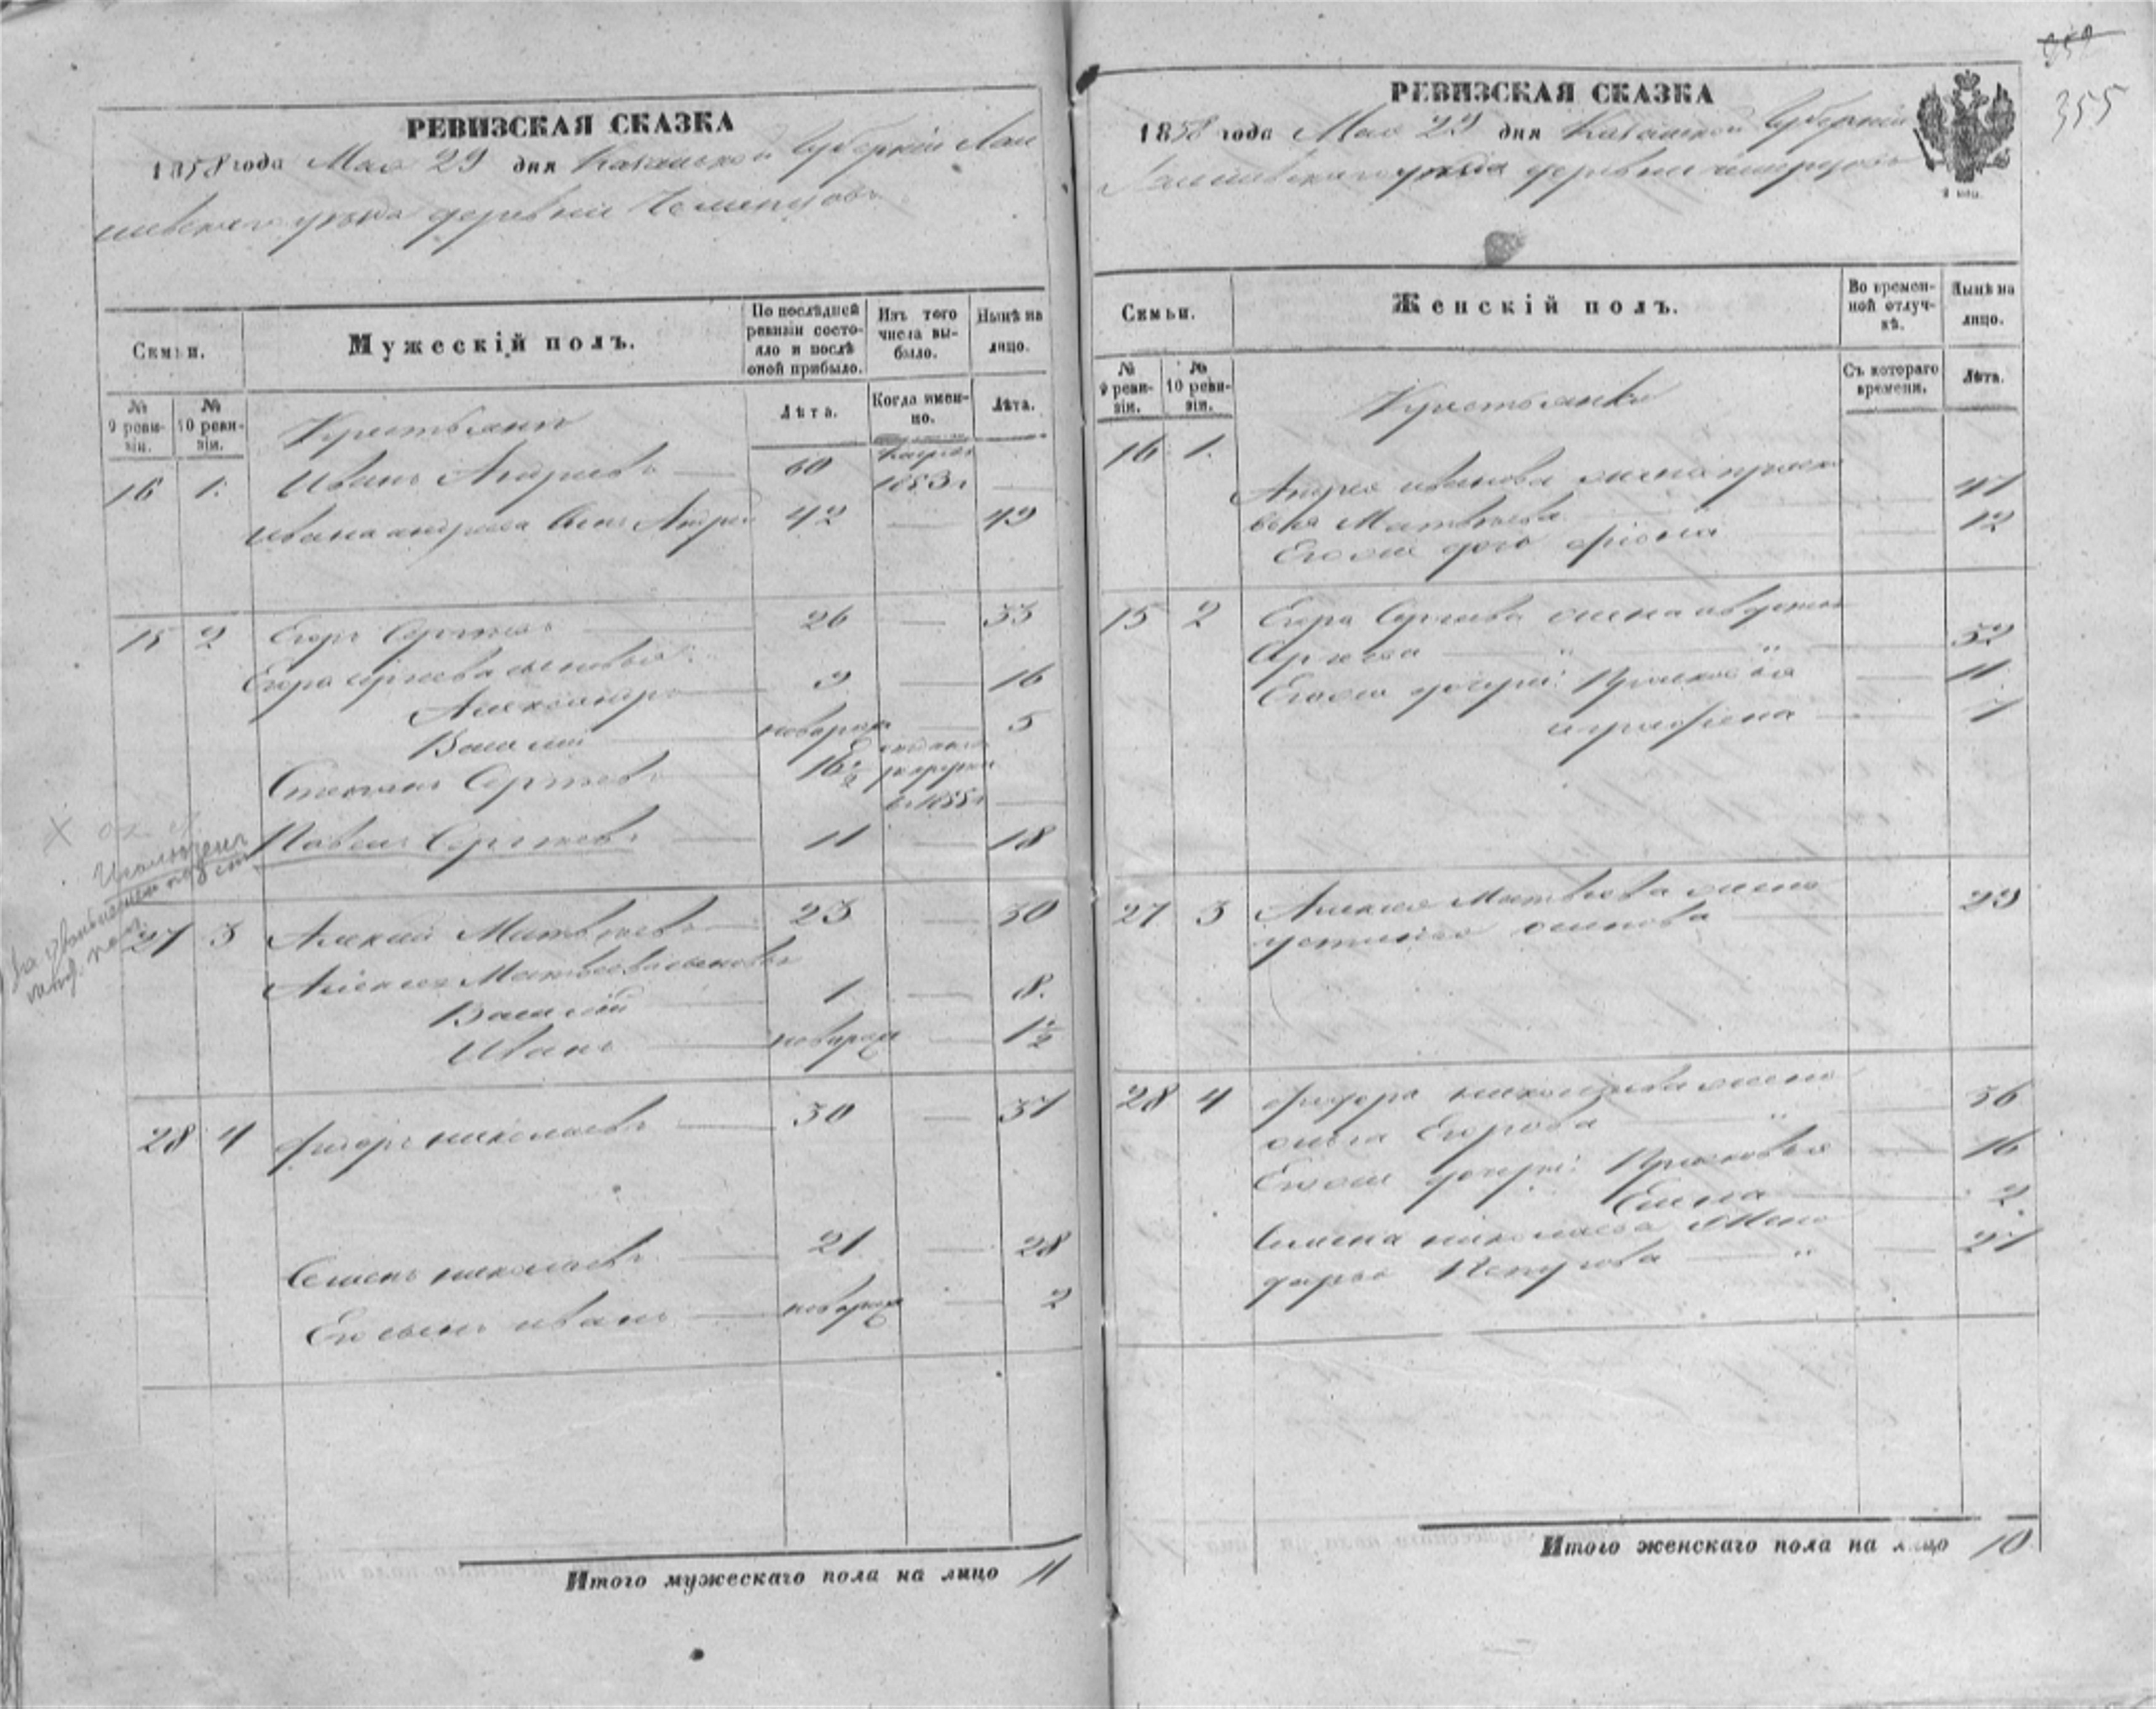 РЕВИЗСКАЯ СКАЗКА
1858 года Мая 29 дня Казанской Губернiи Лаи
шевскаго уѣзда деревни
Семьи.
Мужескiй полъ.
По послѣдней ревизiи состояло и послѣ оной прибыло.
Изъ того числа выбыло.
Нынѣ на лицо.
№ 9 ревизiи.
№ 10 ревизiи.
Лѣта.
Когда именно.
Лѣта.
Крестьяне
16 1. Иванъ Андреевъ 60 1853 г
Ивана Андреева сынъ Андрей 42 49
15 2 Егоръ Сергѣевъ 26 33
Егора Сергеева сыновья:
Александръ 9 16
Василiй новорож 5
Степанъ Сергѣевъ 16 1/2 въ 1855 г
Павелъ Сергѣевъ 11 18
27 3 Алексей Матвѣевъ 23 30
Алексея Матвеева сыновья
Василiй 1 8.
Иванъ новорож 1 1/2
28 4 Федоръ Николаевъ 30 37
Семенъ Николаевъ 21 28
Его сынъ Иванъ новорож 2
Итого мужескаго пола на лицо 11
355
РЕВИЗСКАЯ СКАЗКА
1858 года Мая 29 дня Казанской Губернiи
Лаишевскаго уѣзда деревни
Семьи.
Женскiй полъ.
Во временной отлучкѣ.
Нынѣ на лицо.
№ 9 ревизiи.
№ 10 ревизiи.
Съ котораго времени.
Лѣта.
Крестьянки
16 1. Андрея Иванова жена Праско
вья Матвѣева 47
Его же дочь 12
15 2 Егора Сергеева жена Авдотья
32
Его же дочери: Прасковья 11
Аграфена 7
27 3 Алексея Матвѣева жена 29
Устинья Осипова
28 4 Федора Николаева жена 36
Егорова
Его же дочери: Прасковья 16
Елена 2
Семена Николаева жена 27
Дарья
Итого женскаго пола на лицо 10